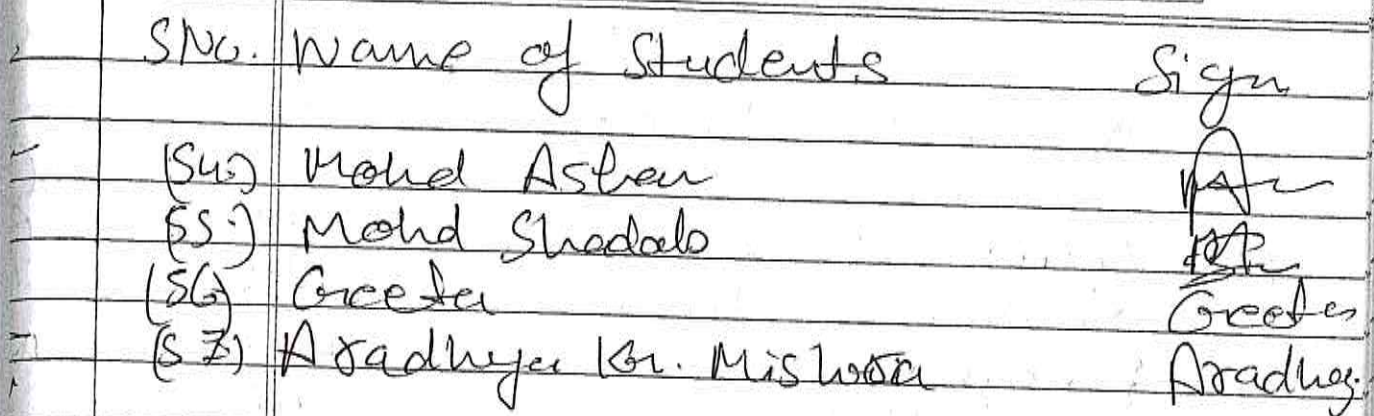 SNo. Name of Students Sign
(54.) Mohd
(55.) Mohd Shadab
(56) Geeta Geeta
(57) Aradhya Kr. Mishra Aradhy.